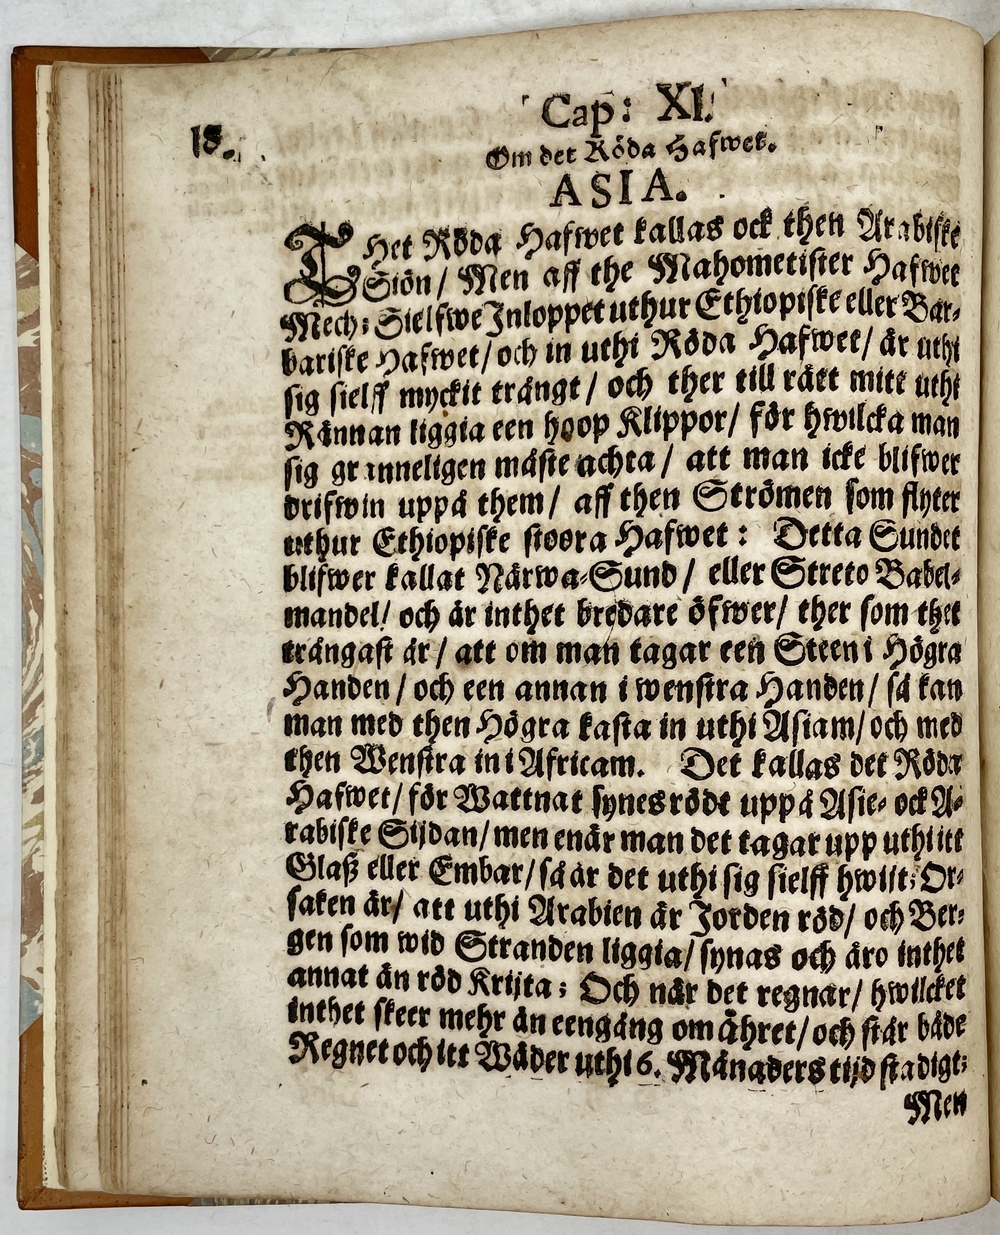 18.
Cap: XI.
Om det Röda Hafwet.
ASIA.
THet Röda Hafwet kallas ock then Arabiske
Siön / Men aff the Mahometister Hafwet
Mech: Sielfwe Inloppet uthur Ethiopiske eller Bar-
bariske Hafwet / och in uthi Röda Hafwet / är uthi
sig sielff myckit trångt / och ther till rätt mitt uthi
Rännan liggia een hoop Klippor / för hwilcka man
sig granneligen måste achta / att man icke blifwer
drifwin uppå them / aff then Strömen som flyter
uthur Ethiopiske stoora Hafwet : Detta Sundet
blifwer kallat Närwa-Sund / eller Streto Babel-
mandel / och är inthet bredare öfwer / ther som thet
trångast är / att om man tagar een Steen i Högra
Handen / och een annan i wenstra Handen / så kan
man med then Högra kasta in uthi Asiam / och med
then Wenstra in i Africam. Det kallas det Röda
Hafwet / för Wattnat synes rödt uppå Asie- ock A-
rabiske Sijdan / men enär man det tagar upp uthi itt
Glaß eller Embar / så är det uthi sig sielff hwijt; Or-
saken är / att uthi Arabien är Jorden röd / och Ber-
gen som wid Stranden liggia / synas och äro inthet
annat än röd Krijta ; Och när det regnar / hwilcket
inthet skeer mehr än eengång om åhret / och står både
Regnet och itt Wäder uthi 6. Månaders tijd stadigt;
Men